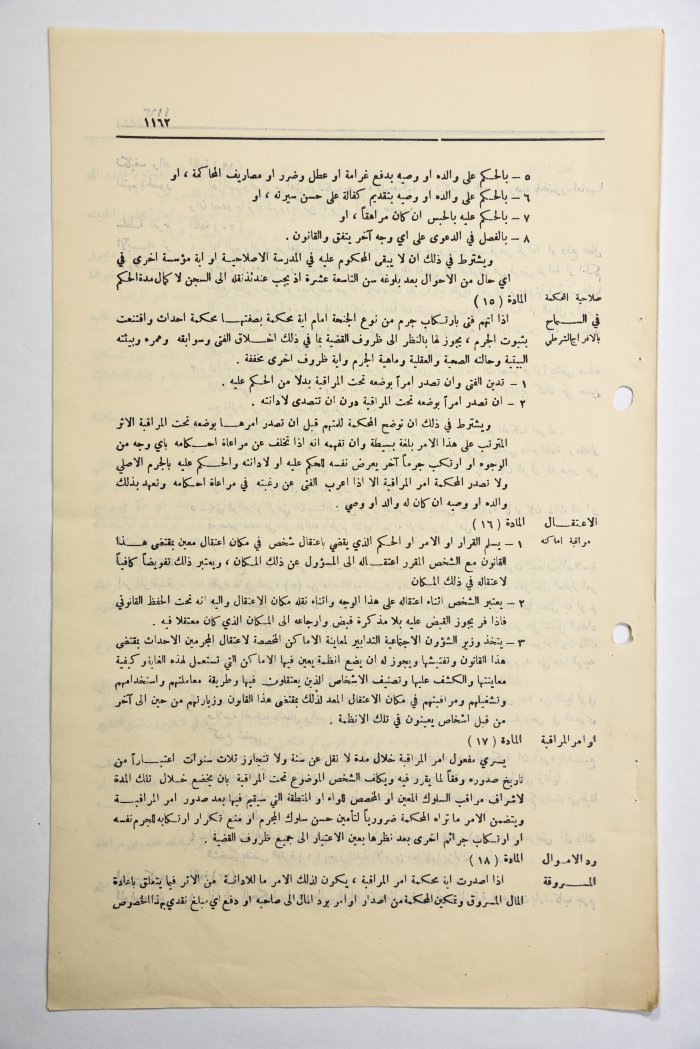 ١١٦٢
٥ – بالحكم على والده او وصيه بدفع غرامة او عطل وضرر او مصاريف المحاكمة ، او
٦ – بالحكم على والده او وصيه بتقديم كفالة على حسن سيرته ، او
٧ – بالحكم عليه بالحبس ان كان مراهقاً ، او
٨ – بالفصل في الدعوى على اي وجه آخر يتفق والقانون .
ويشترط في ذلك ان لا يبقى المحكوم عليه في المدرسة الاصلاحية او اية مؤسسة اخرى في
اي حال من الاحوال بعد بلوغه سن التاسعة عشرة اذ يجب عندئذ نقله الى السجن لاكمال مدة الحكم
صلاحية المحكمة المادة ( ١٥ )
في السماح اذا اتهم فتى بارتكاب جرم من نوع الجنحة امام اية محكمة بصفتها محكمة احداث واقتنعت
بالافراج الشرطي بثبوت الجرم ، يجوز لها بالنظر الى ظروف القضية بما في ذلك اخلاق الفتى وسوابقه وعمره وبيئته
البيتية وحالته الصحية والعقلية وماهية الجرم واية ظروف اخرى مخففة .
١ – تدين الفتى وان تصدر امراً بوضعه تحت المراقبة بدلا من الحكم عليه .
٢ – ان تصدر امراً بوضعه تحت المراقبة دون ان تتصدى لادانته .
ويشترط في ذلك ان توضح المحكمة للمتهم قبل ان تصدر امرها بوضعه تحت المراقبة الاثر
المترتب على هذا الامر بلغة بسيطة وان تفهمه انه اذا تخلف عن مراعاة احكامه باي وجه من
الوجوه او ارتكب جرماً آخر يعرض نفسه للحكم عليه او لادانته والحكم عليه بالجرم الاصلي
ولا تصدر المحكمة امر المراقبة الا اذا اعرب الفتى عن رغبته في مراعاة احكامه وتعهد بذلك
والده او وصيه ان كان له والد او وصي .
الاعتقال المادة ( ١٦ )
مراقبة اماكنه ١ – يسلم القرار او الامر او الحكم الذي يقضي باعتقال شخص في مكان اعتقال معين بمقتضى هذا
القانون مع الشخص المقرر اعتقاله الى المسؤول عن ذلك المكان ، ويعتبر ذلك تفويضاً كافياً
لاعتقاله في ذلك المكان
٢ – يعتبر الشخص اثناء اعتقاله على هذا الوجه واثناء نقله مكان الاعتقال واليه انه تحت الحفظ القانوني
فاذا فر يجوز القبض عليه بلا مذكرة قبض وارجاعه الى المكان الذي كان معتقلا فيه .
٣ – يتخذ وزير الشؤون الاجتماعية التدابير لمعاينة الاماكن المخصصة لاعتقال المجرمين الاحداث بمقتضى
هذا القانون وتفتيشها ويجوز له ان يضع انظمة يعين فيها الاماكن التي تستعمل لهذه الغاية وكيفية
معاينتها والكشف عليها وتصنيف الاشخاص الذين يعتقلون فيها وطريقة معاملتهم واستخدامهم
وتشغيلهم ومراقبتهم في مكان الاعتقال المعد لذلك بمقتضى هذا القانون وزيارتهم من حين الى آخر
من قبل اشخاص يعينون في تلك الانظمة .
اوامر المراقبة المادة ( ١٧ )
يسري مفعول امر المراقبة خلال مدة لا تقل عن سنة ولا تتجاوز ثلاث سنوات اعتباراً من
تاريخ صدوره وفقاً لما يقرر فيه ويكلف الشخص الموضوع تحت المراقبة بان يخضع خلال تلك المدة
لاشراف مراقب السلوك المعين او المخصص للواء او المنطقة التي سيقيم فيها بعد صدور امر المراقبة
ويتضمن الامر ما تراه المحكمة ضرورياً لتأمين حسن سلوك المجرم او منع تكرار ارتكابه للجرم نفسه
او ارتكاب جرائم اخرى بعد نظرها بعين الاعتبار الى جميع ظروف القضية .
رد الاموال المادة ( ١٨ )
المسروقة اذا اصدرت اية محكمة امر المراقبة ، يكون لذلك الامر ما للادانة من الاثر فيما يتعلق باعادة
المال المسروق وتمكين المحكمة من اصدار اوامر برد المال الى صاحبه او دفع اي مبلغ نقدي بهذا الخصوص